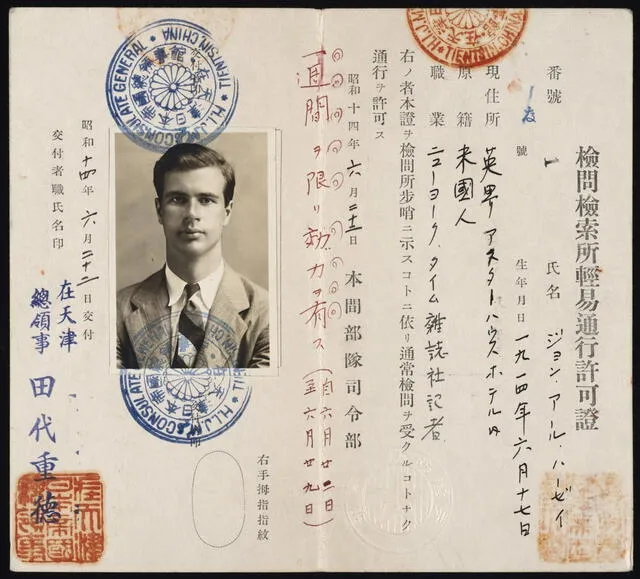 檢問檢索所輕易通行許可證
番號
號
氏名 ジョン、アール、ハーゼイ
生年月日 一九一四年六月十七日
現住所 英界アスターハウスホテル内
原籍 米國人
職業 ニューヨーク、タイム雜誌社記者
右ノ者本證ヲ檢問所步哨ニ示スコトニ依リ通常檢問ヲ受クルコトナク
通行ヲ許可ス
昭和十四年六月二十二日 本間部隊司令部
一週間ヲ限リ効力ヲ有ス
(自六月廿二日
至六月廿九日)
右手拇指指紋
昭和十四年六月二十二日交付
交付者職氏名印
在天津
總領事 田代重德
H.I.J.M.'S CONSULATE GENERAL
TIENTSIN, CHINA